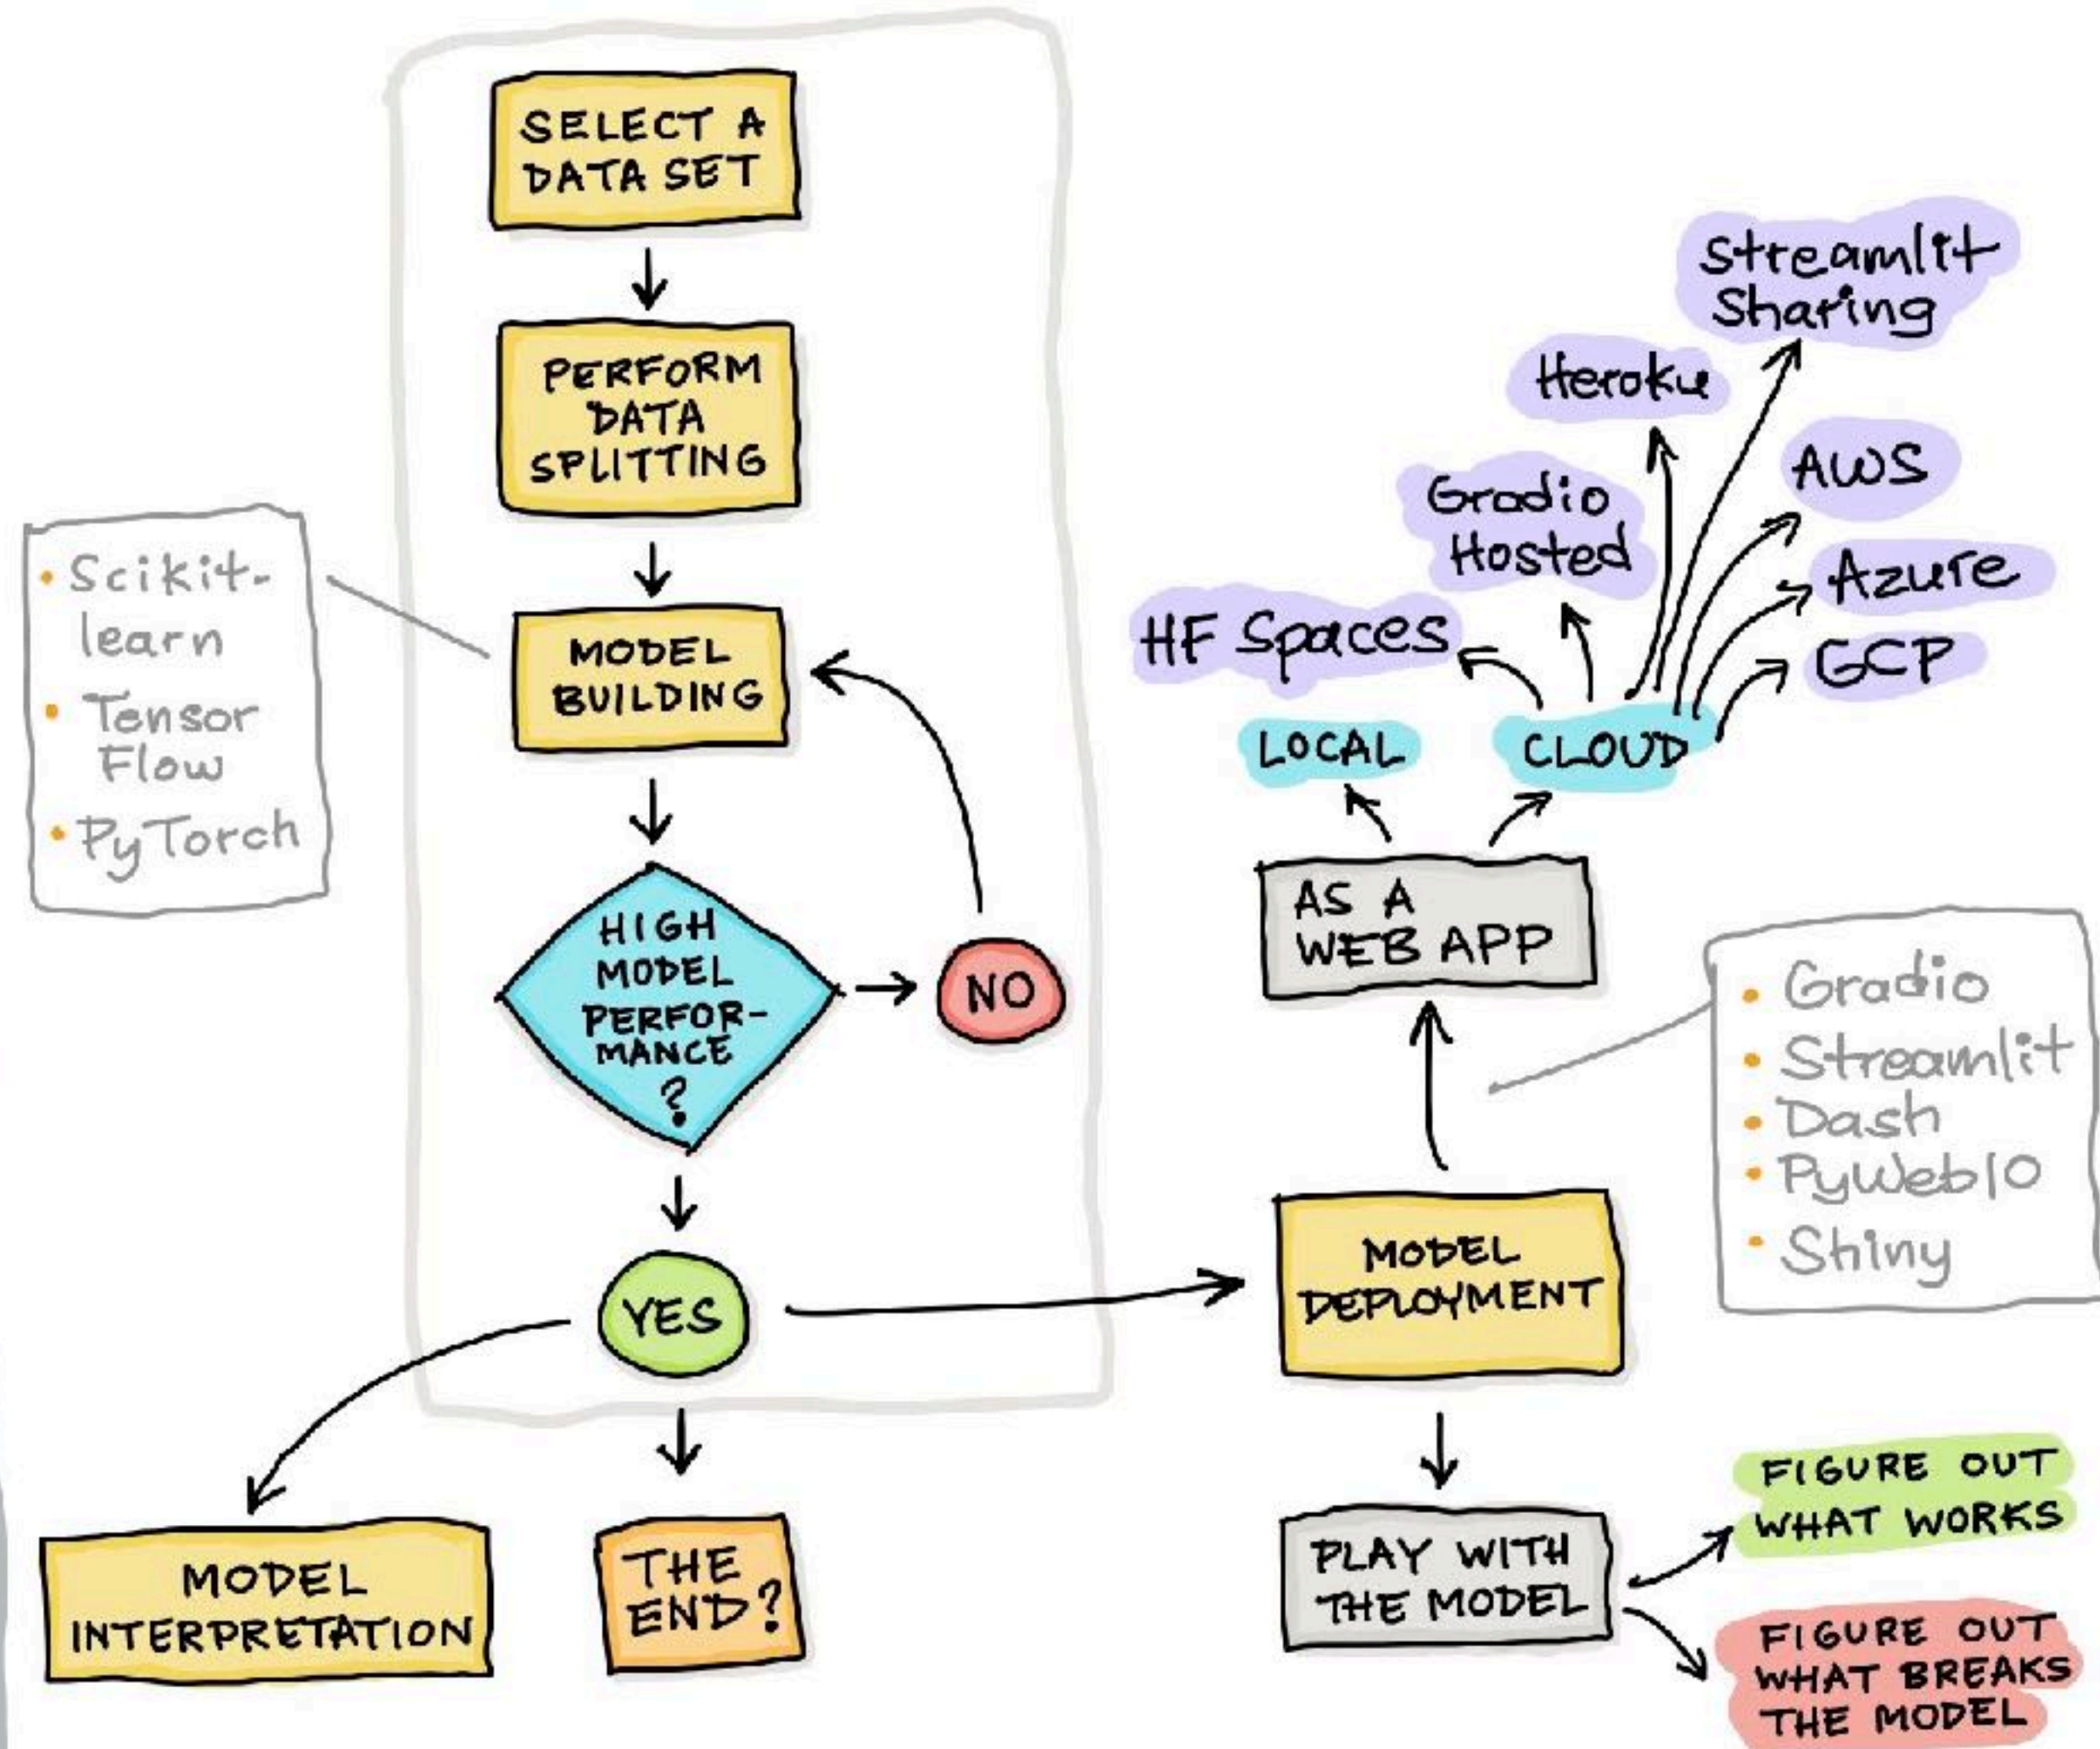 SELECT A
DATA SET
PERFORM
DATA
SPLITTING
MODEL
BUILDING
• Scikit-
learn
• Tensor
Flow
• PyTorch
HIGH
MODEL
PERFOR-
MANCE
?
NO
YES
MODEL
INTERPRETATION
THE
END?
MODEL
DEPLOYMENT
• Gradio
• Streamlit
• Dash
• PyWebIO
• Shiny
AS A
WEB APP
LOCAL
CLOUD
HF Spaces
Gradio
Hosted
Heroku
Streamlit
Sharing
AWS
Azure
GCP
PLAY WITH
THE MODEL
FIGURE OUT
WHAT WORKS
FIGURE OUT
WHAT BREAKS
THE MODEL